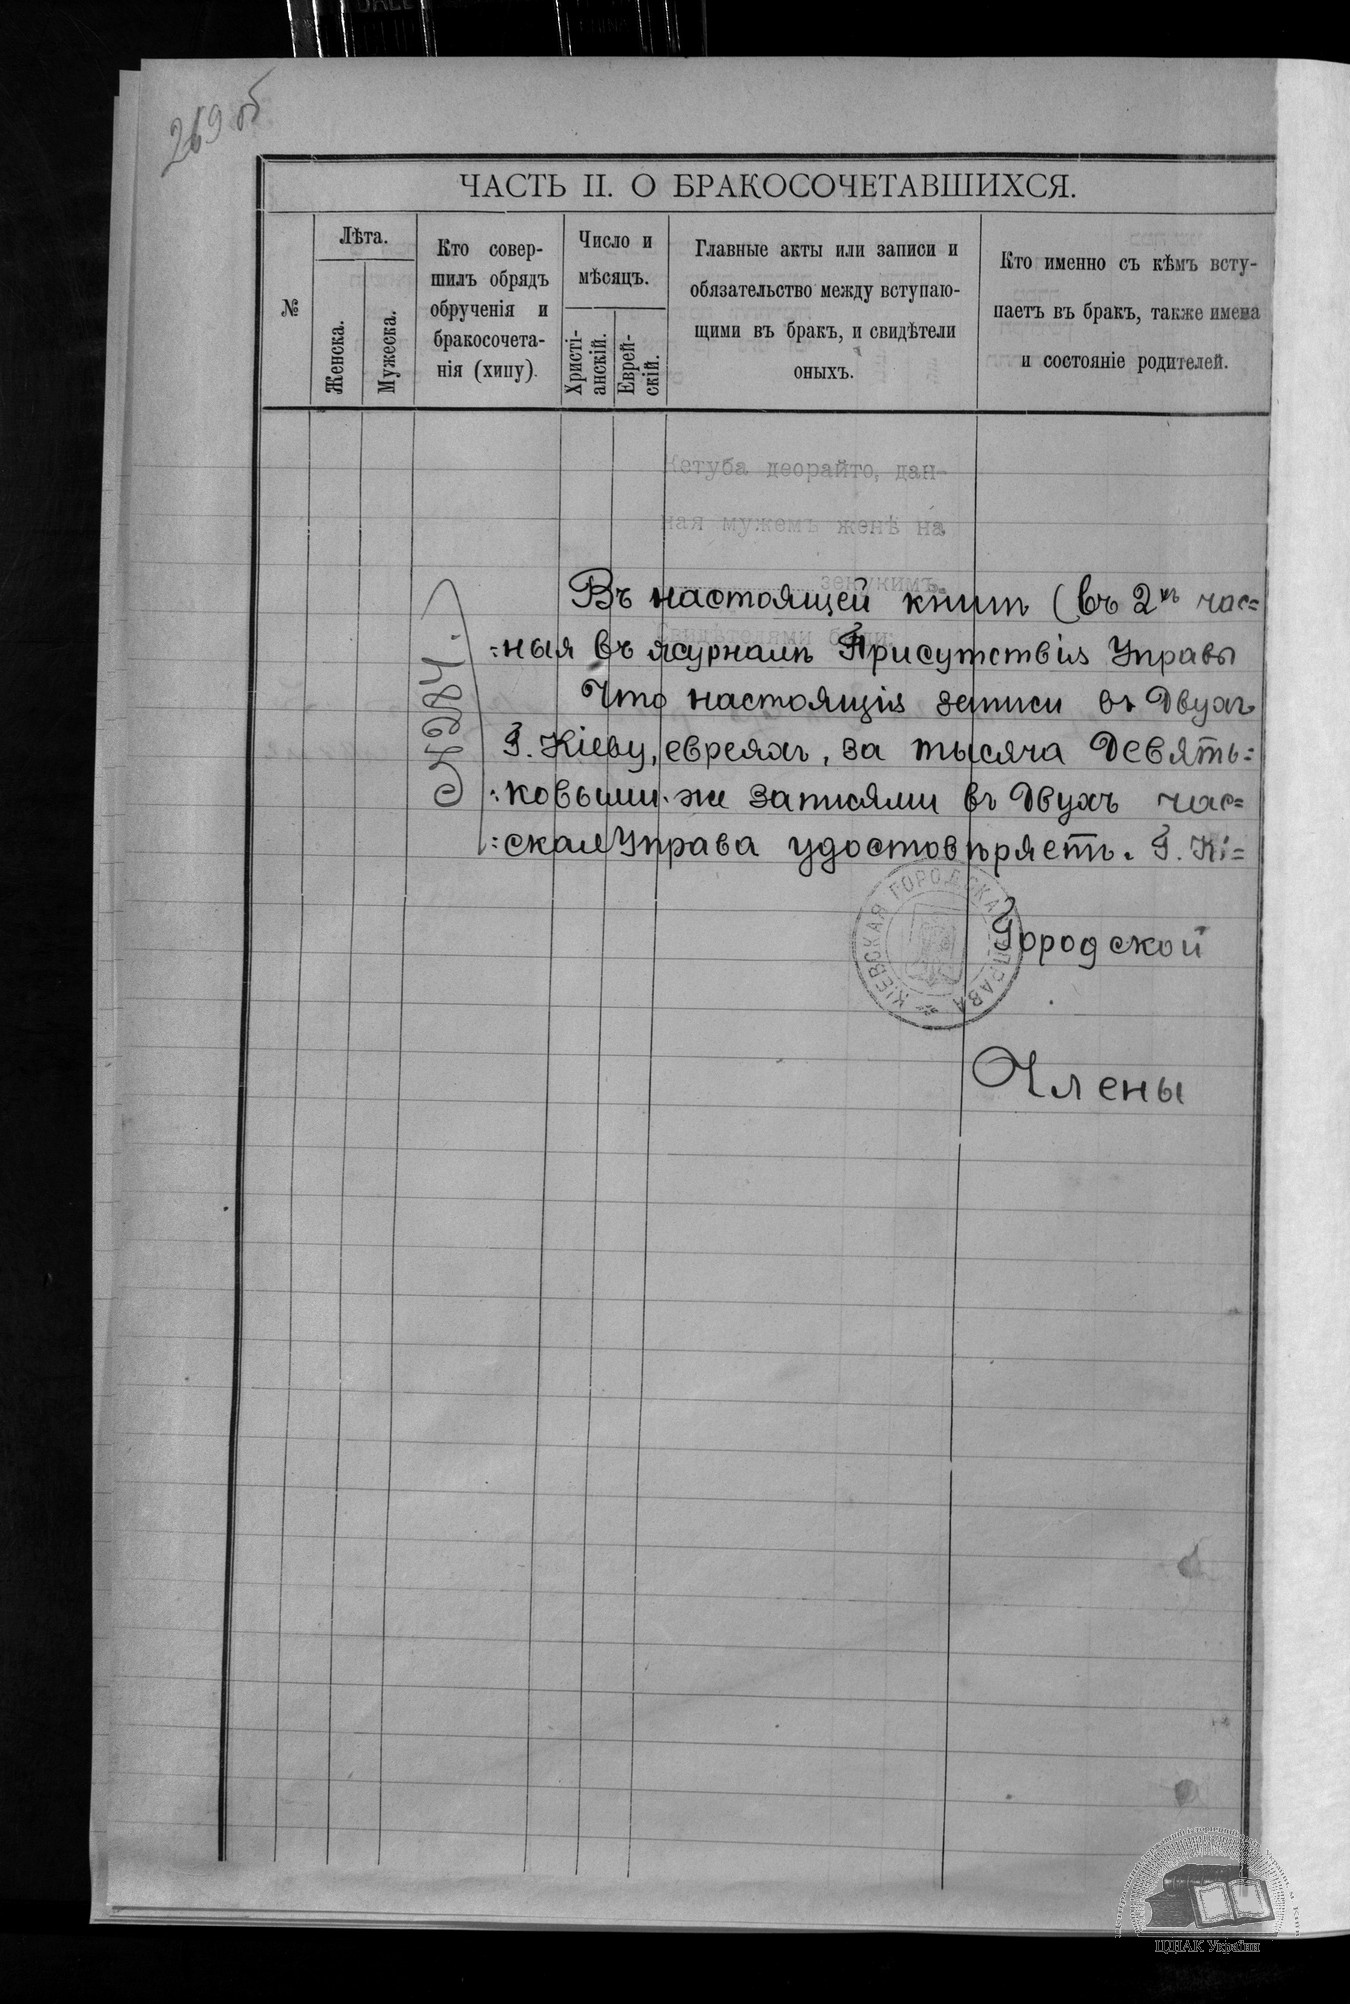 269 об
ЧАСТЬ II. О БРАКОСОЧЕТАВШИХСЯ.
№
Лѣта.
Женска.
Мужеска.
Кто совер-
шилъ обрядъ
обрученія и
бракосочета-
нія (хипу).
Число и
мѣсяцъ.
Христі-
анскій.
Еврей-
скій.
Главные акты или записи и
обязательство между вступаю-
щими въ бракъ, и свидѣтели
оныхъ.
Кто именно съ кѣмъ всту-
паетъ въ бракъ, также имена
и состояніе родителей.
Кетуба деорайто, дан-
ная мужемъ женѣ на
зекукимъ.
Свидѣтелями были:
Въ настоящей книгѣ (въ 2хъ час=
:ныя въ журналѣ Присутствія Управы
Что настоящія записи въ двухъ
Г. Кіеву, евреяхъ, за тысяча девять=
:ковыми же записями въ двухъ час=
:ская Управа удостовѣряетъ. Г. Кі=
КІЕВСКАЯ ГОРОДСКАЯ УПРАВА
Городской
Члены
ЦДІАК України